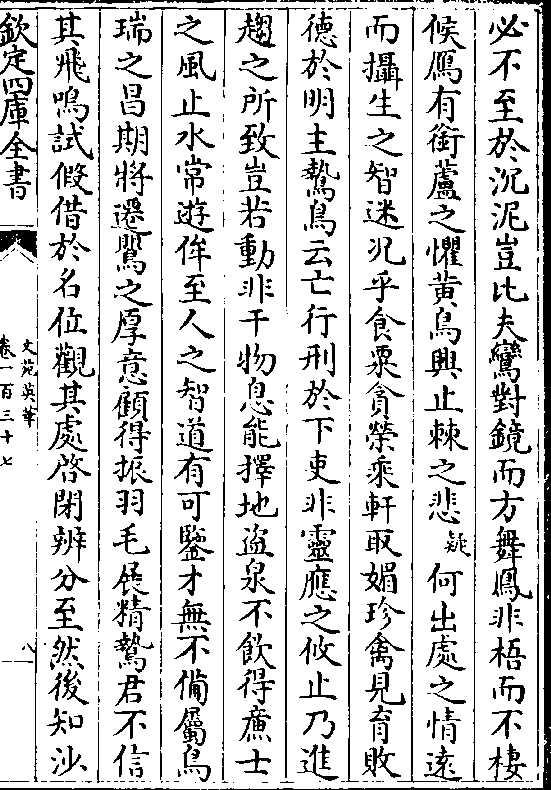 必不至於沉泥豈比夫鸞對鏡而方舞鳳非梧而不棲
候鴈有銜蘆之懼黄鳥興止棘之悲疑何出處之情遠
而攝生之智迷况乎食粟貪榮乘軒取媚珍禽見育敗
德於明主鷙鳥云亡行刑於下吏非靈應之攸止乃進
趨之所致豈若動非干物息能擇地盗泉不飲得㢘士
之風止水常遊侔至人之智道有可鑒才無不備屬鳥
瑞之昌期將遷鸎之厚意顧得振羽毛展精鷙君不信
其飛鳴試假借於名位觀其處啓閉辨分至然後知沙
欽定四庫全書
文苑英華
卷一百三十七
八